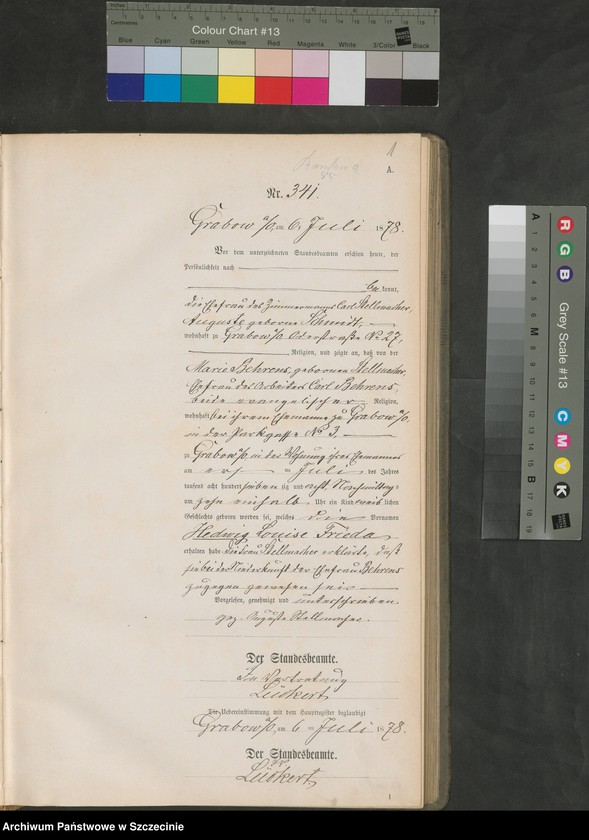 Inches
Centimetres
Colour Chart #13
Blue Cyan Green Yellow Red Magenta White 3/Color Black
1
A.
Nr. 341.
Grabow a/O, am 6. Juli 1878.
Vor dem unterzeichneten Standesbeamten erschien heute, der
Persönlichkeit nach
be kannt,
die Ehefrau des Zimmermanns Carl Stellmacher,
Auguste geborene Schmidt,
wohnhaft zu Grabow a/O. Oderstraße No 27,
Religion, und zeigte an, daß von der
Marie Behrens, geborenen Stellmacher,
Ehefrau des Arbeiters Carl Behrens,
beide evangelischer Religion,
wohnhaft bei ihrem Ehemanne zu Grabow a/O.
in der Parkgasse No 3,
zu Grabow a/O. in der Wohnung ihres Ehemannes
am Juli des Jahres
tausend acht hundert sieben zig und acht Nachmittags
um zehn einhalb Uhr ein Kind weib lichen
Geschlechts geboren worden sei, welches die Vornamen
Hedwig Louise Frieda
erhalten habe. die Frau Stellmacher erklärte, daß
sie bei der Niederkunft der Ehefrau Behrens
zugegen gewesen sei
Vorgelesen, genehmigt und unterschrieben
gez. Auguste Stellmacher.
Der Standesbeamte.
In Vertretung
Lübkert
Die Uebereinstimmung mit dem Hauptregister beglaubigt
Grabow a/O, am 6 Juli 1878.
Der Standesbeamte.
Lübkert
1
Grey Scale #13
A 1 2 3 4 5 6 M 8 9 10 11 12 13 14 15 B 17 18 19
R G B
C M Y K
Archiwum Państwowe w Szczecinie